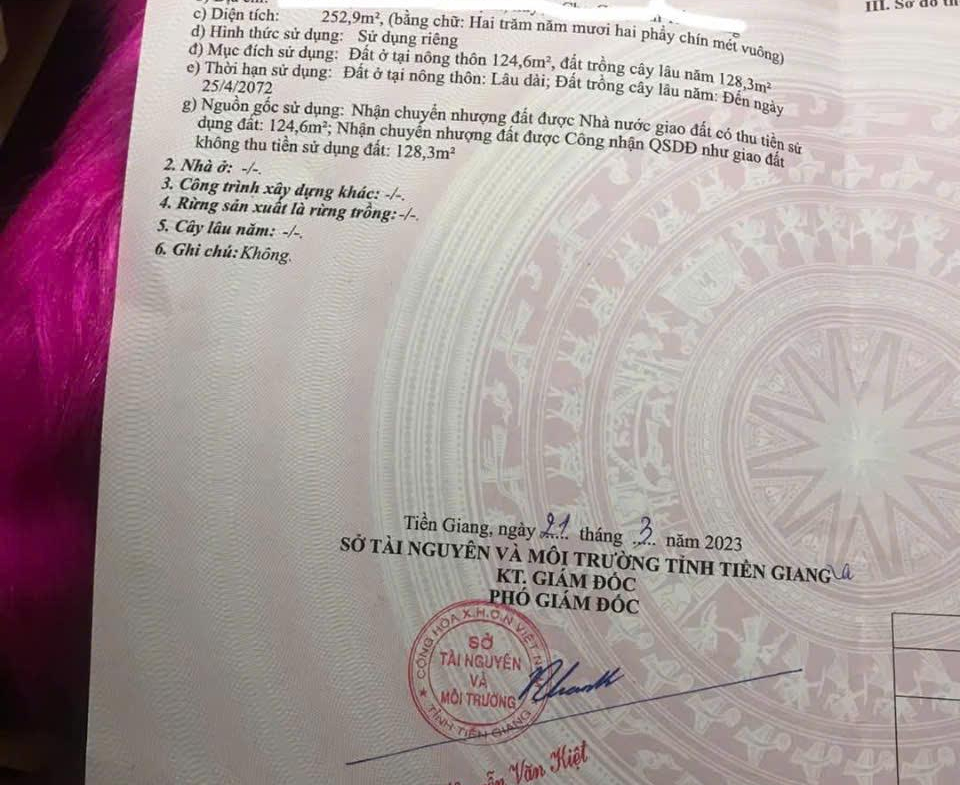 III. Sơ đồ
c) Diện tích: 252,9m², (bằng chữ: Hai trăm năm mươi hai phẩy chín mét vuông)
d) Hình thức sử dụng: Sử dụng riêng
đ) Mục đích sử dụng: Đất ở tại nông thôn 124,6m², đất trồng cây lâu năm 128,3m²
e) Thời hạn sử dụng: Đất ở tại nông thôn: Lâu dài; Đất trồng cây lâu năm: Đến ngày
25/4/2072
g) Nguồn gốc sử dụng: Nhận chuyển nhượng đất được Nhà nước giao đất có thu tiền sử
dụng đất: 124,6m²; Nhận chuyển nhượng đất được Công nhận QSDĐ như giao đất
không thu tiền sử dụng đất: 128,3m²
2. Nhà ở: -/-.
3. Công trình xây dựng khác: -/-.
4. Rừng sản xuất là rừng trồng:-/-.
5. Cây lâu năm: -/-.
6. Ghi chú: Không.
Tiền Giang, ngày 21 tháng 3 năm 2023
SỞ TÀI NGUYÊN VÀ MÔI TRƯỜNG TỈNH TIỀN GIANG
KT. GIÁM ĐỐC
PHÓ GIÁM ĐỐC
CỘNG HÒA X.H.C.N VIỆT NAM
SỞ
TÀI NGUYÊN
VÀ
MÔI TRƯỜNG
TỈNH TIỀN GIANG
Văn Kiệt